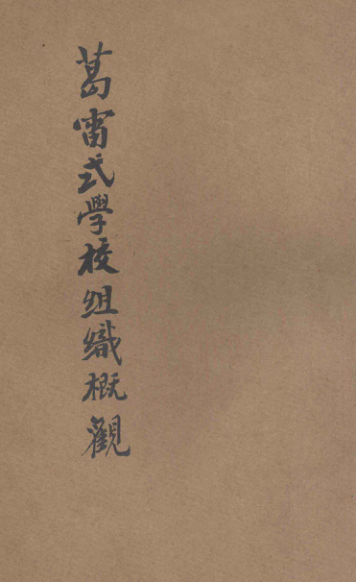 葛雷式學校组織概觀